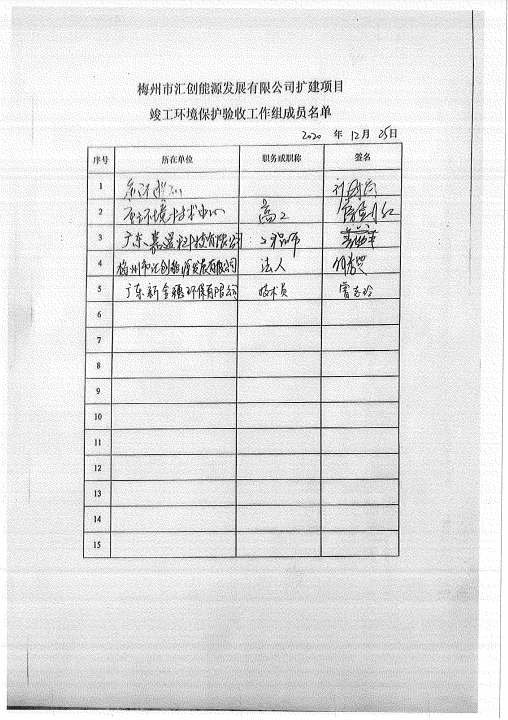 梅州市汇创能源发展有限公司扩建项目
竣工环境保护验收工作组成员名单
2020 年 12 月 25 日
序号 所在单位 职务或职称 签名
1
2 高工
3 广东 科技有限公司 工程师
4 梅州市汇创能源发展有限公司 法人
5 广东新金穗环保有限公司 技术员 雷志玲
6
7
8
9
10
11
12
13
14
15